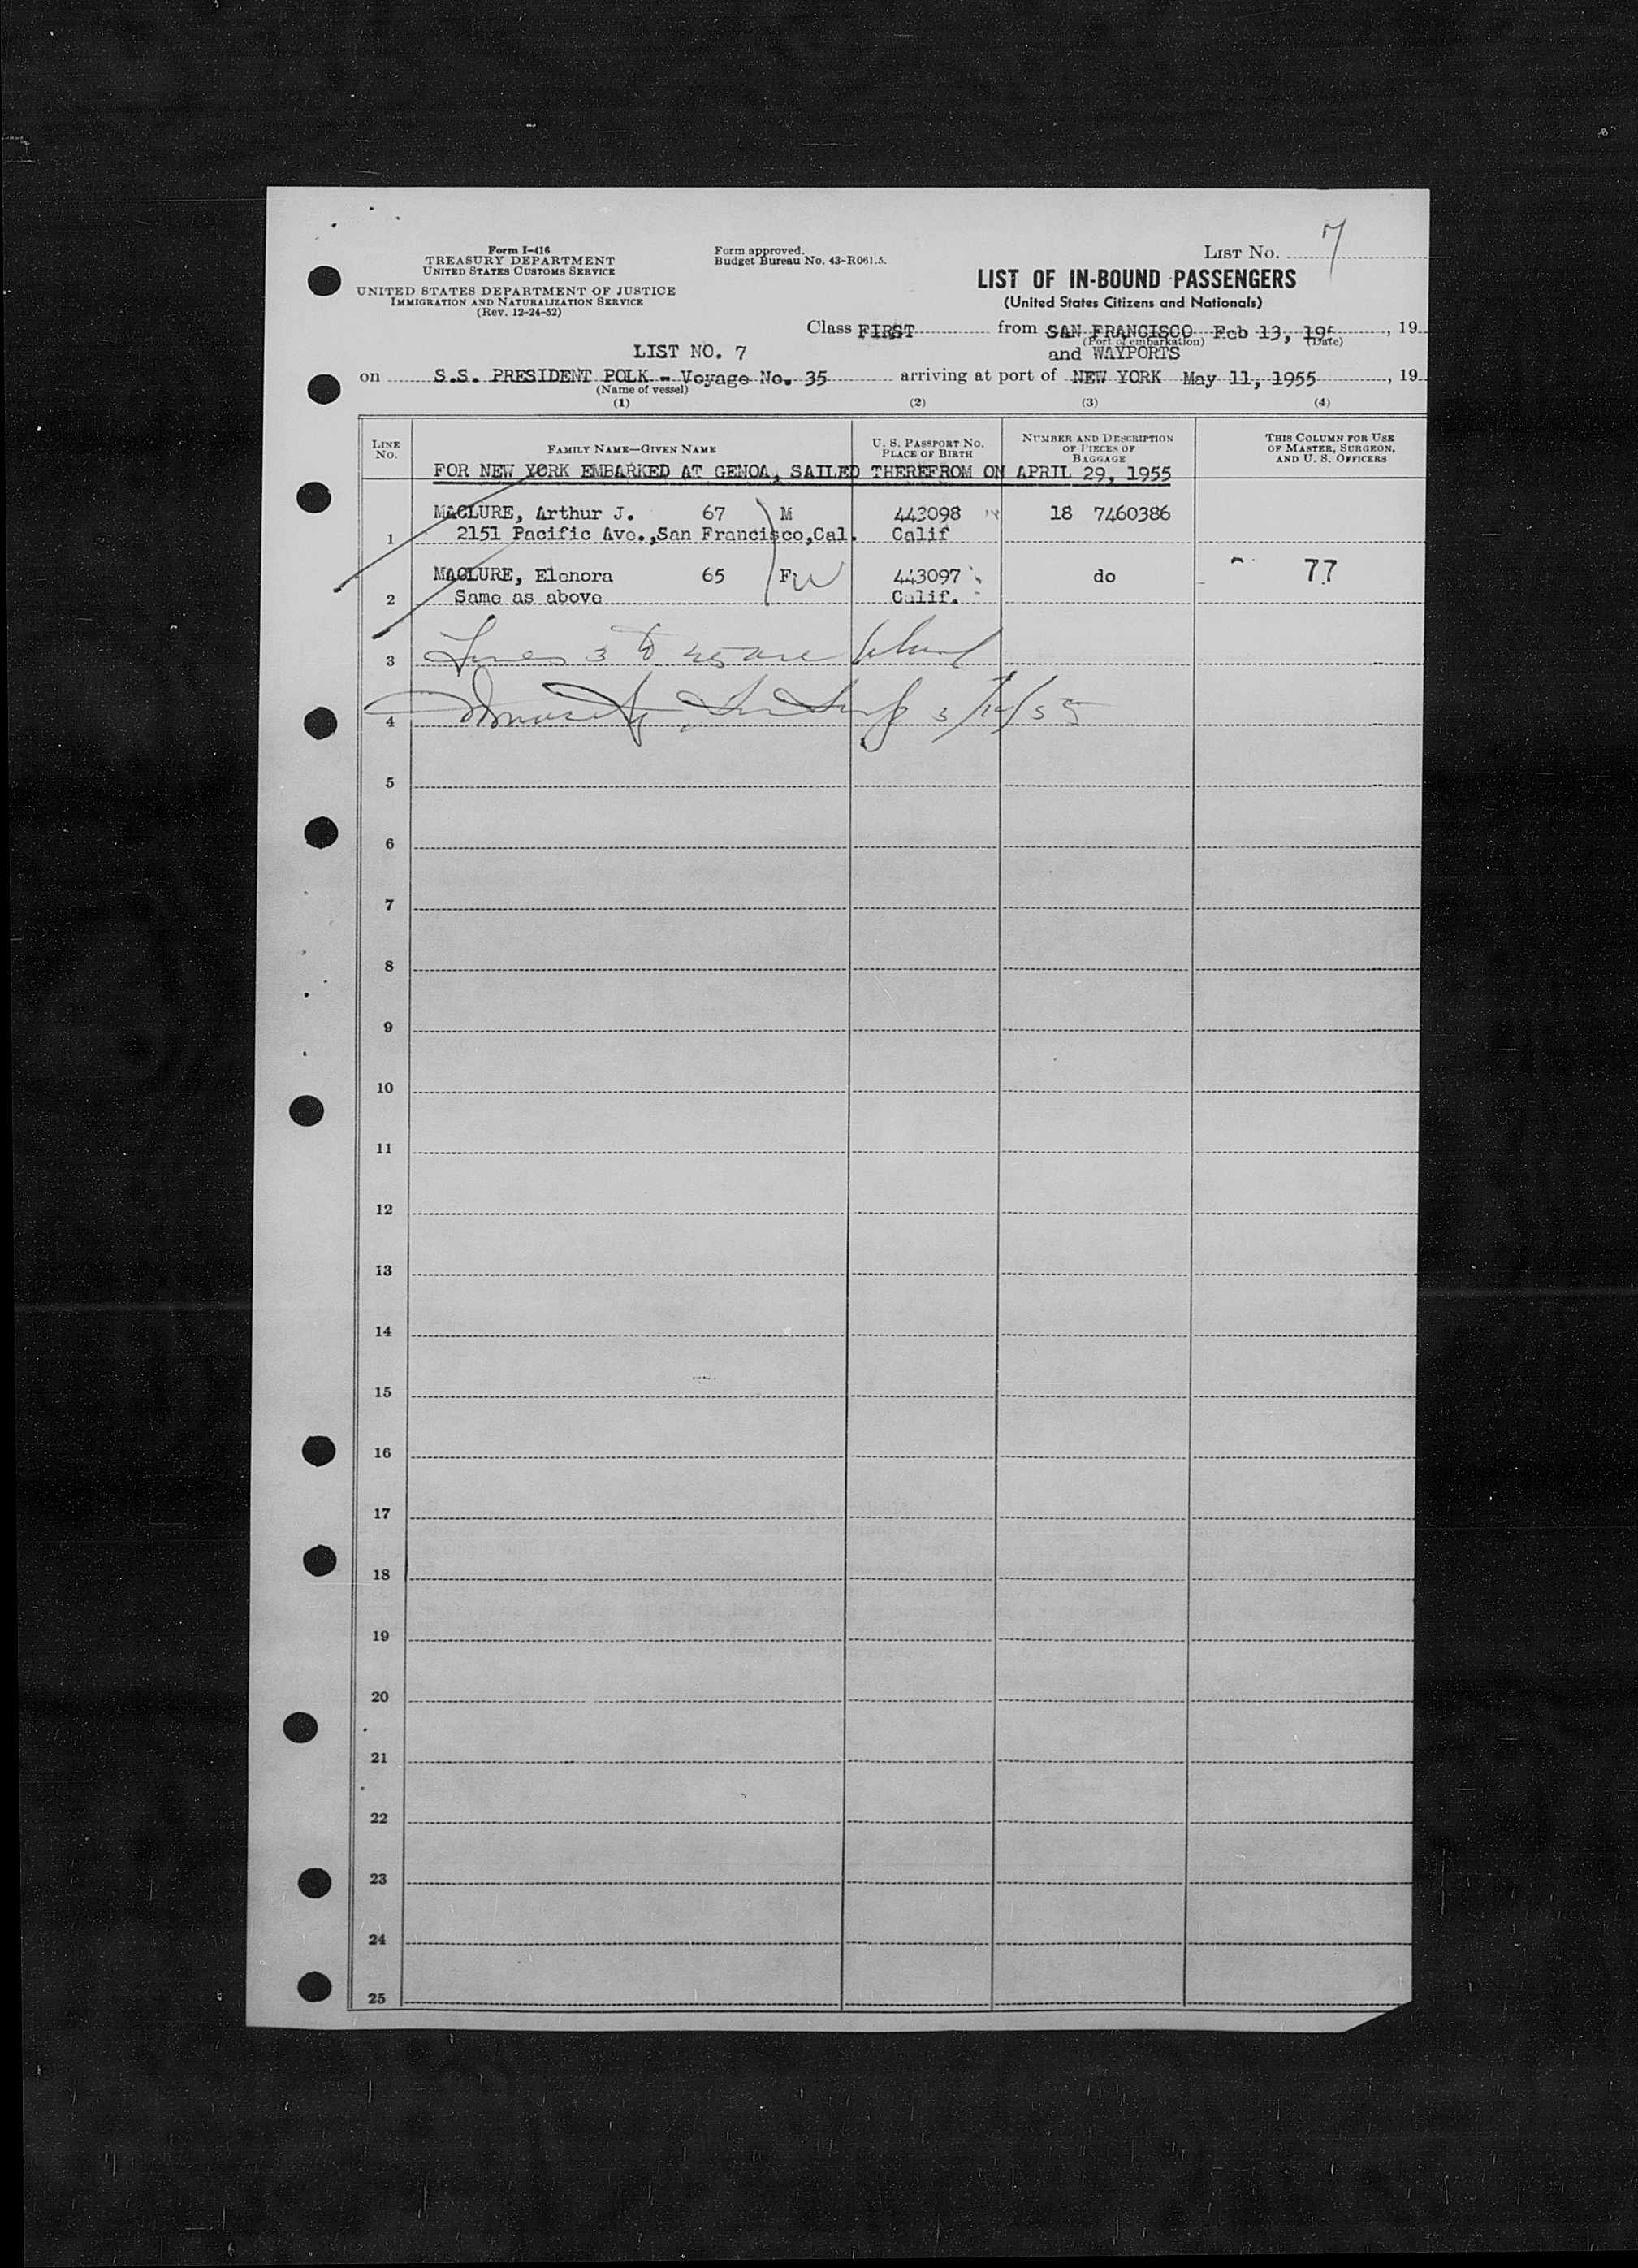 7
Form I-416
TREASURY DEPARTMENT
UNITED STATES CUSTOMS SERVICE
UNITED STATES DEPARTMENT OF JUSTICE
IMMIGRATION AND NATURALIZATION SERVICE
(Rev. 12-24-52)
Form approved.
Budget Bureau No. 43-R061.5.
LIST NO.
LIST OF IN-BOUND PASSENGERS
(United States Citizens and Nationals)
Class FIRST from SAN FRANCISCO Feb 13, 195 , 19
(Port of embarkation) (Date)
LIST NO. 7 and WAYPORTS
on S.S. PRESIDENT POLK - Voyage No. 35 arriving at port of NEW YORK May 11, 1955 , 19
(Name of vessel)
(1) (2) (3) (4)
LINE NO.
FAMILY NAME—GIVEN NAME
U. S. PASSPORT NO.
PLACE OF BIRTH
NUMBER AND DESCRIPTION
OF PIECES OF
BAGGAGE
THIS COLUMN FOR USE
OF MASTER, SURGEON,
AND U. S. OFFICERS
FOR NEW YORK EMBARKED AT GENOA, SAILED THEREFROM ON APRIL 29, 1955
MACLURE, Arthur J. 67 M 443098 18 7460386
1 2151 Pacific Ave.,San Francisco,Cal. Calif
MACLURE, Elenora 65 F W 443097 do 77
2 Same as above Calif.
3 Lines 3 to 25 are blank
4
5
6
7
8
9
10
11
12
13
14
15
16
17
18
19
20
21
22
23
24
25